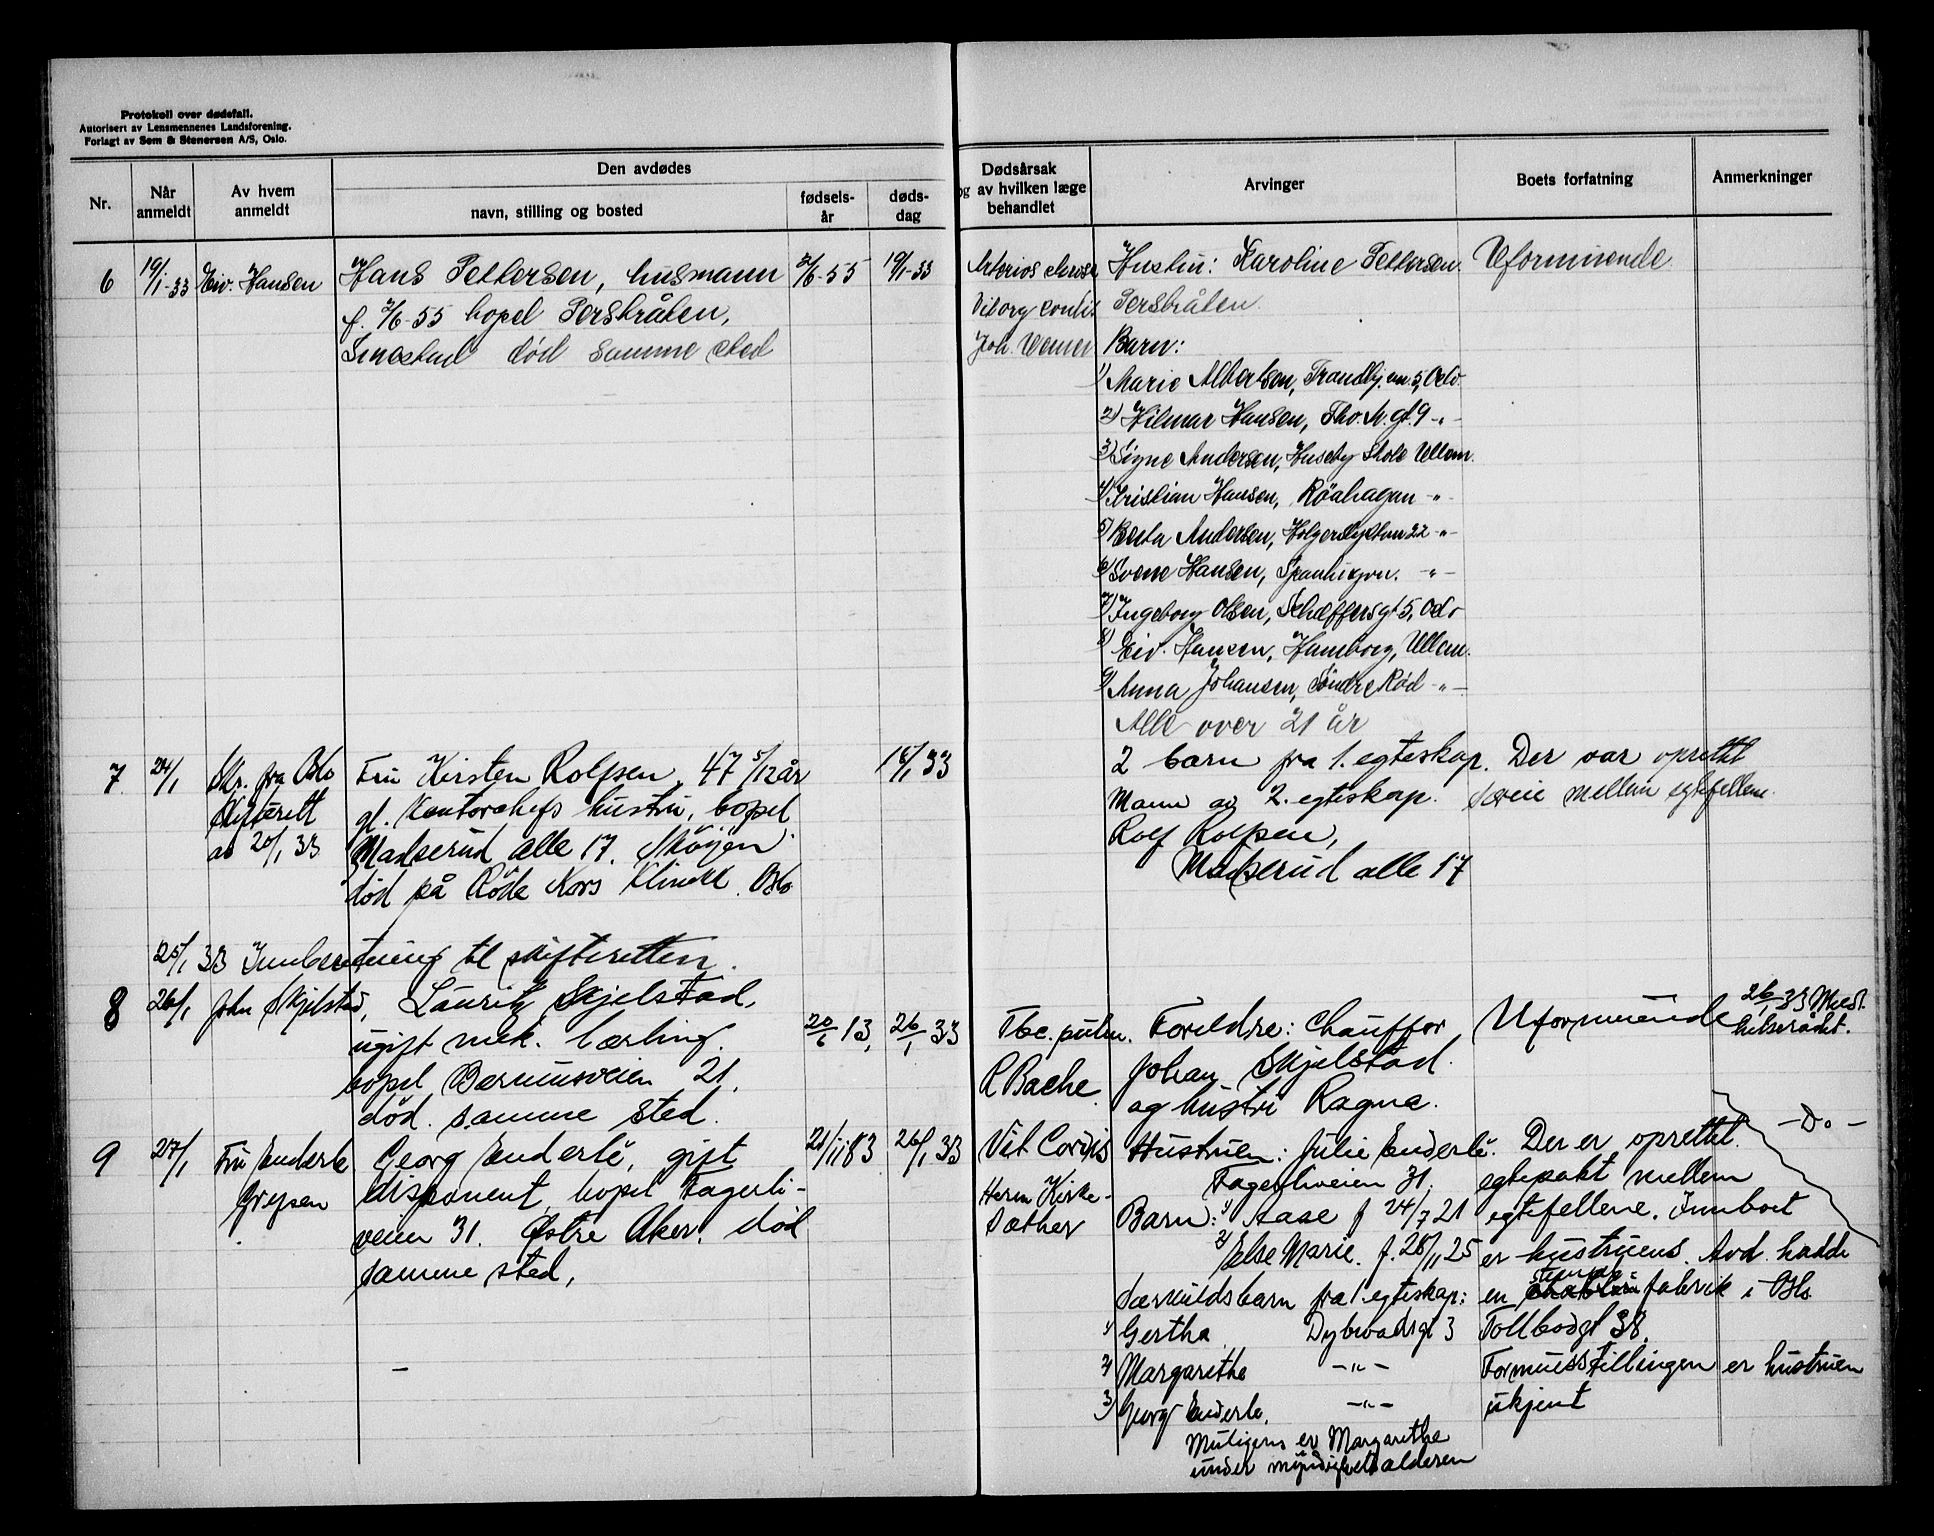 Protokoll over dødsfall.
Autorisert av Lensmennenes Landsforening.
Forlagt av Sem & Stenersen A/S, Oslo.
Nr.
Når anmeldt
Av hvem anmeldt
Den avdødes
navn, stilling og bosted
fødsels-år
døds-dag
Dødsårsak
og av hvilken læge
behandlet
Arvinger
Boets forfatning
Anmerkninger
6 19/1-33 Eiv. Hansen Hans Pettersen, husmann 2/6-55 19/1-33
f. 2/6-55 bopel Persbråten,
død samme sted
Hustru: Karoline Pettersen. Uformuende
Persbråten.
Barn:
1) Marie Albertsen, 5, Oslo.
2) Hilmar Hansen, Tho. M. gt. 9 -"-
3) Signe Andersen, Huseby Skole Ullern.
4) Kristian Hansen, Røahagan -"-
5) Berta Andersen, Holgerslystvn 22 -"-
6) Hansen, -"-
7) Ingeborg Olsen, Schæffersgt 5, Oslo
8) Eiv. Hansen, Hamborg, Ullern.
9) Anna Johansen, Søndre Rød -"-
Alle over 21 år
7 24/1 Skr. fra Oslo Fru Kirsten Rolfsen, 47 5/12 år 18/1 33
Skifterett gl. Kontorchefs hustru, bopel
av 20/1 33 Madserud alle 17. Skøyen.
død på Røde Kors Klinikk. Oslo
2 barn fra 1. egteskap. Der var oprettet
Mann av 2. egteskap. særeie mellem egtefellene.
Rolf Rolfsen,
Madserud alle 17
25/1 33 Innberetning til skifteretten.
8 26/1 John Skjelstad, Lauritz Skjelstad,
ugift mek. lærling. 20/6 13, 26/1 33
bopel Bærumsveien 21.
død samme sted.
Tbc. pulm. Foreldre: Chauffør Uformuende 26/1-33 Meldt
R Bache Johan Skjelstad. helserådet.
og hustru Ragna.
9 27/1 Fru Enderle Georg Enderle, gift 21/11 83 26/1 33
Grefsen disponent, bopel Fagerli-
veien 31. Østre Aker. død
samme sted,
Vit Cordis Hustruen: Julie Enderle. Der er oprettet -Do-
Herm Kirke- Fagerliveien 31. egtepakt mellem
Sæther Barn: 1) Aase f 24/7 21 egtefellene. Innboet
2) Else Marie. f. 28/11 25 er hustruens. Avd. hadde
Særkuldsbarn fra 1 egteskap: en fabrik i Oslo
1) Gertha Dybwadsgt 3 Tollbodgt 38.
2) Margarethe -"- Formuesstillingen er hustruen
3) Georg Enderle. -"- ukjent
Muligens er Margarethe
under myndighetsalderen